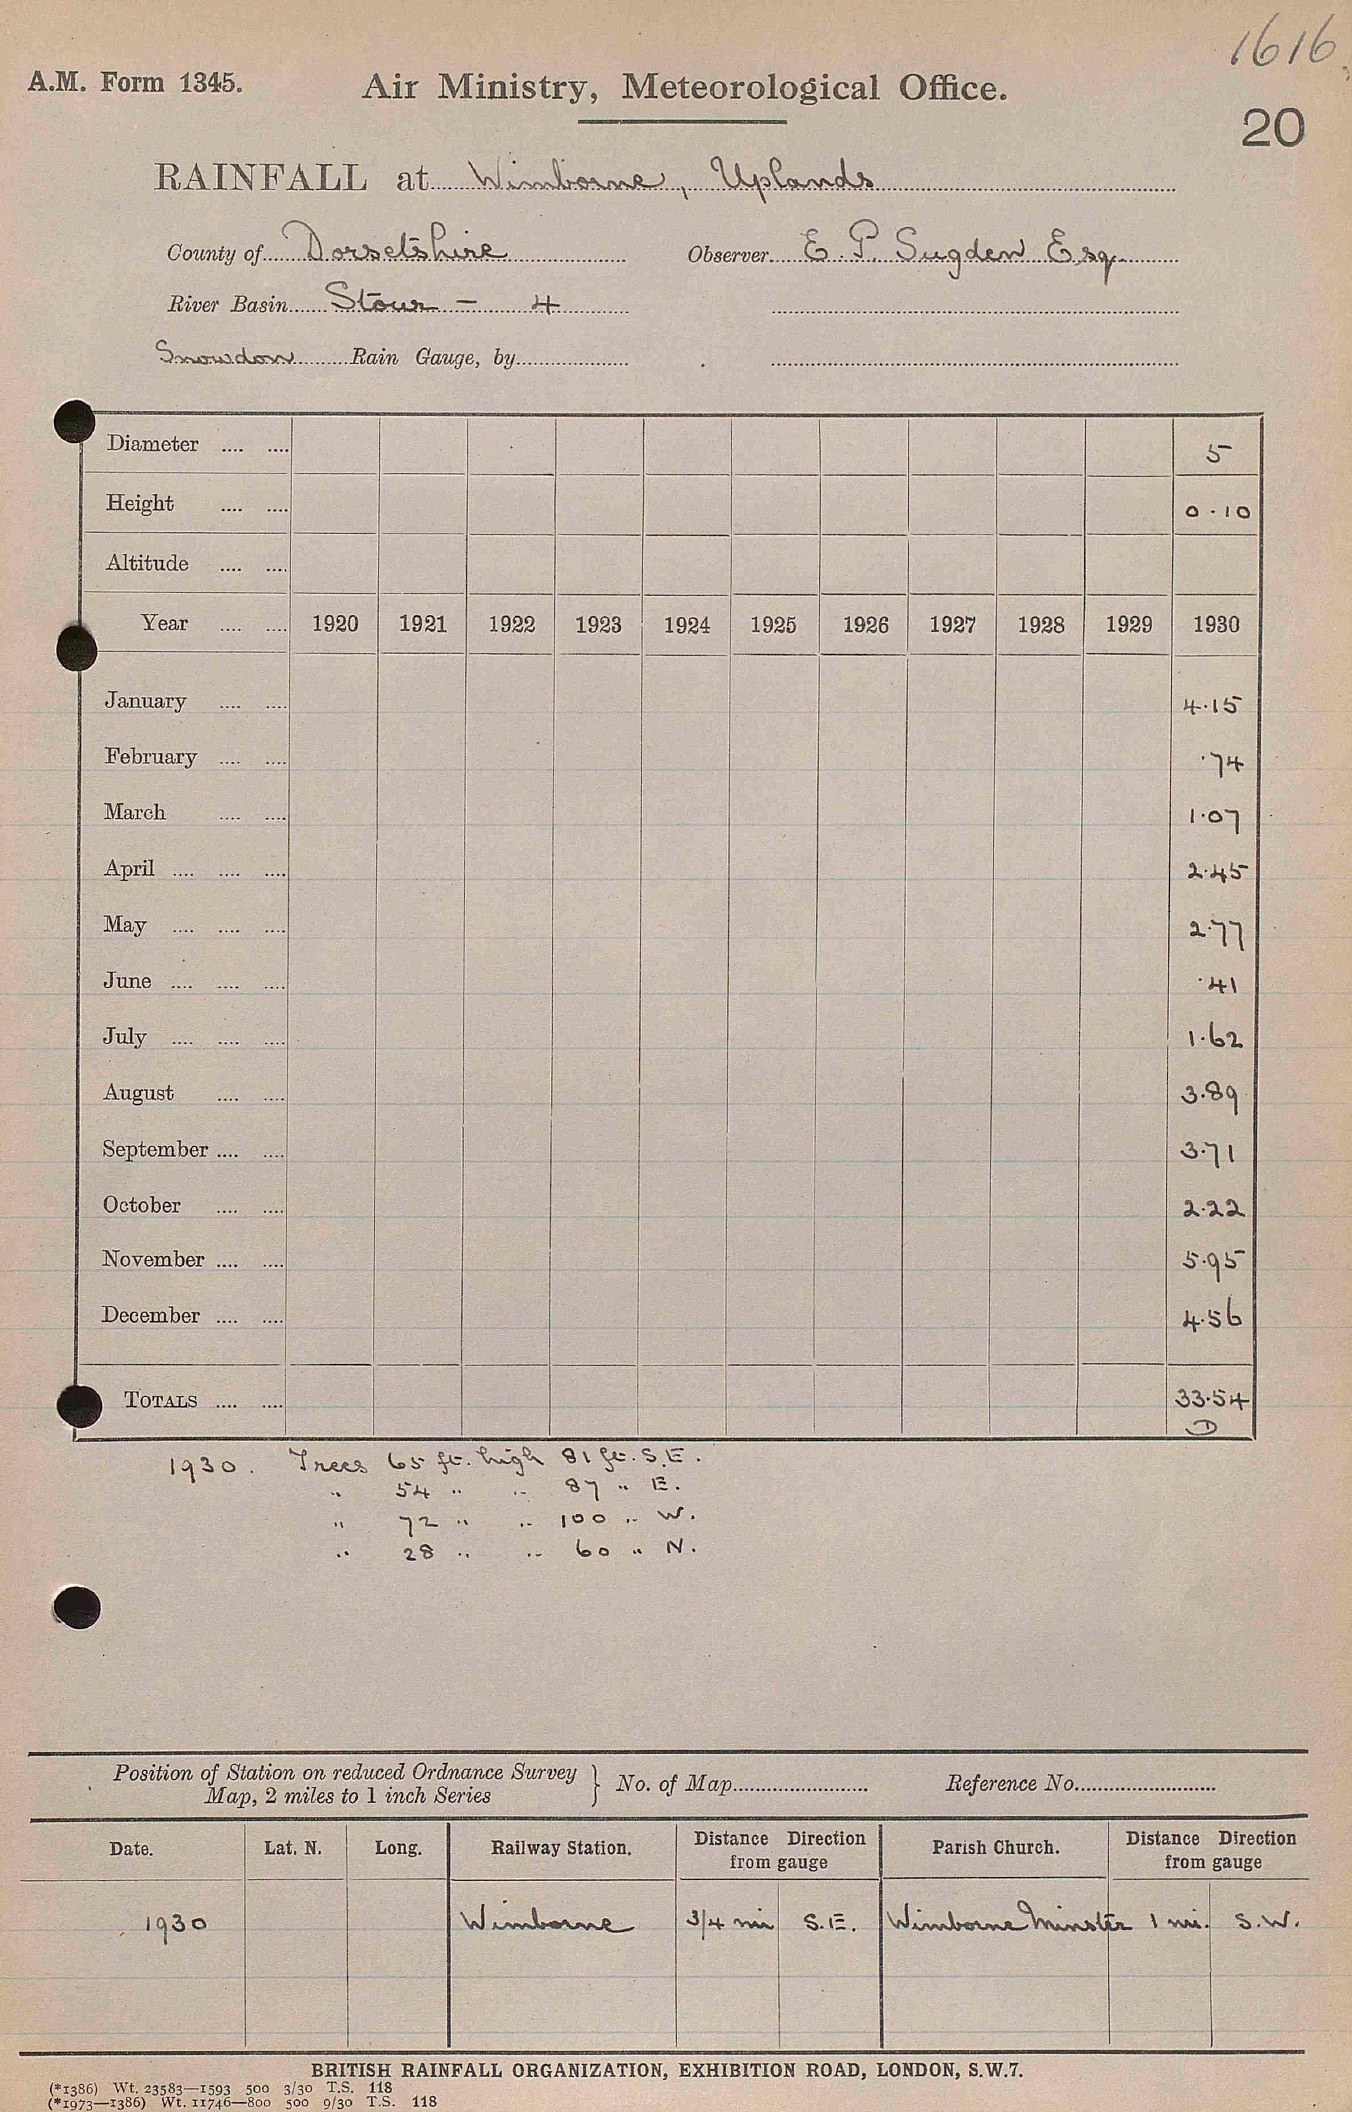 1616
A.M. Form 1345.
Air Ministry, Meteorological Office.
20
RAINFALL at Wimborne, Uplands
County of Dorsetshire Observer E. P. Sugden Esq.
River Basin Stour - 4
Snowdon Rain Gauge, by
Diameter .... .... 5
Height .... .... 0.10
Altitude .... ....
Year .... .... 1920 1921 1922 1923 1924 1925 1926 1927 1928 1929 1930
January .... .... 4.15
February .... .... .74
March .... .... 1.07
April .... .... .... 2.45
May .... .... .... 2.77
June .... .... .... .41
July .... .... .... 1.62
August .... .... 3.89
September .... .... 3.71
October .... .... 2.22
November .... .... 5.95
December .... .... 4.56
TOTALS .... .... 33.54
D
1930. Trees 65 ft. high 81 ft. S.E.
" 54 " " 87 " E.
" 72 " " 100 " W.
" 28 " " 60 " N.
Position of Station on reduced Ordnance Survey
Map, 2 miles to 1 inch Series } No. of Map Reference No.
Date. Lat. N. Long. Railway Station. Distance Direction from gauge Parish Church. Distance Direction from gauge
1930 Wimborne 3/4 mi S.E. Wimborne Minster 1 mi. S.W.
BRITISH RAINFALL ORGANIZATION, EXHIBITION ROAD, LONDON, S.W.7.
(*1386) Wt. 23583—1593 500 3/30 T.S. 118
(*1973—1386) Wt. 11746—800 500 9/30 T.S. 118